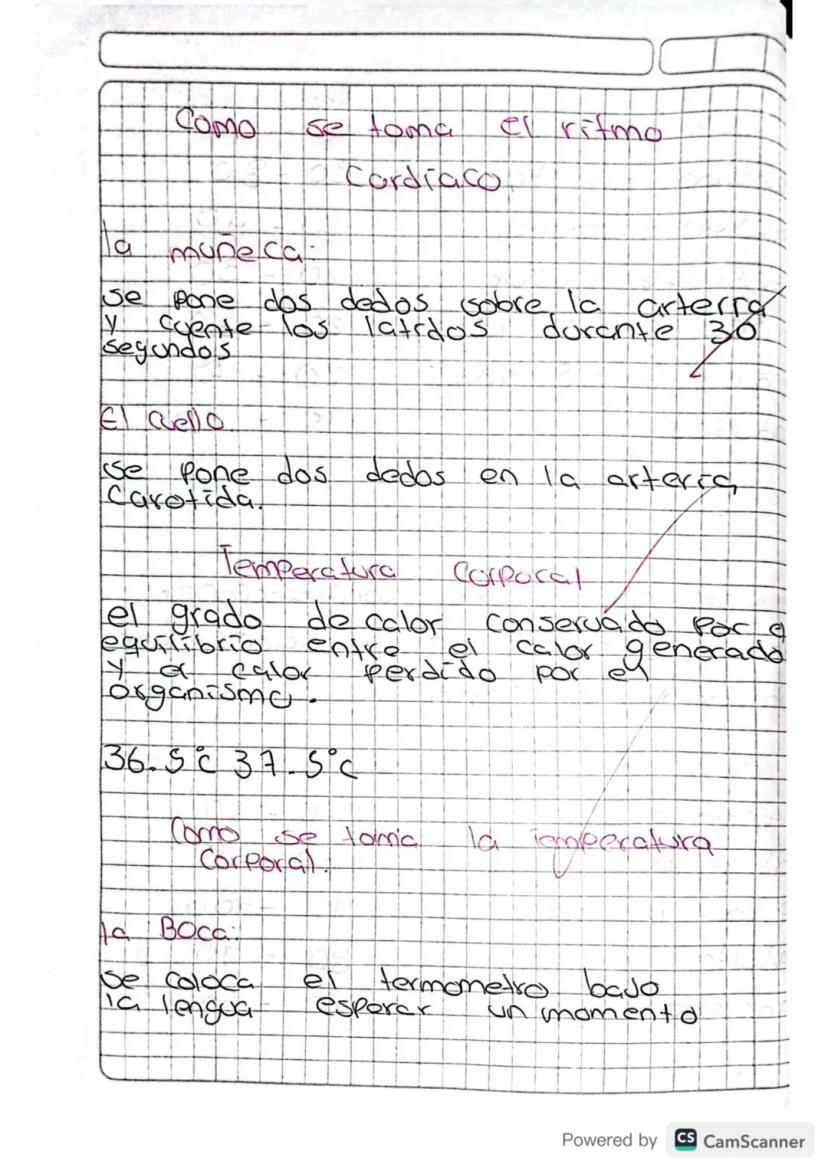 Como se toma el ritmo
Cardíaco
la muñeca:
se pone dos dedos sobre la arterra
y cuente los latidos durante 30
segundos
El cuello
se pone dos dedos en la arterra
Carotida.
Temperatura Corporal
el grado de calor conservado por e
equilibrio entre el calor generado
y el calor perdido por el
organismo.
36.5°c 37.5°c
Como se toma la temperatura
Corporal.
la Boca:
se coloca el termometro bajo
la lengua esperar un momento
Powered by CS CamScanner